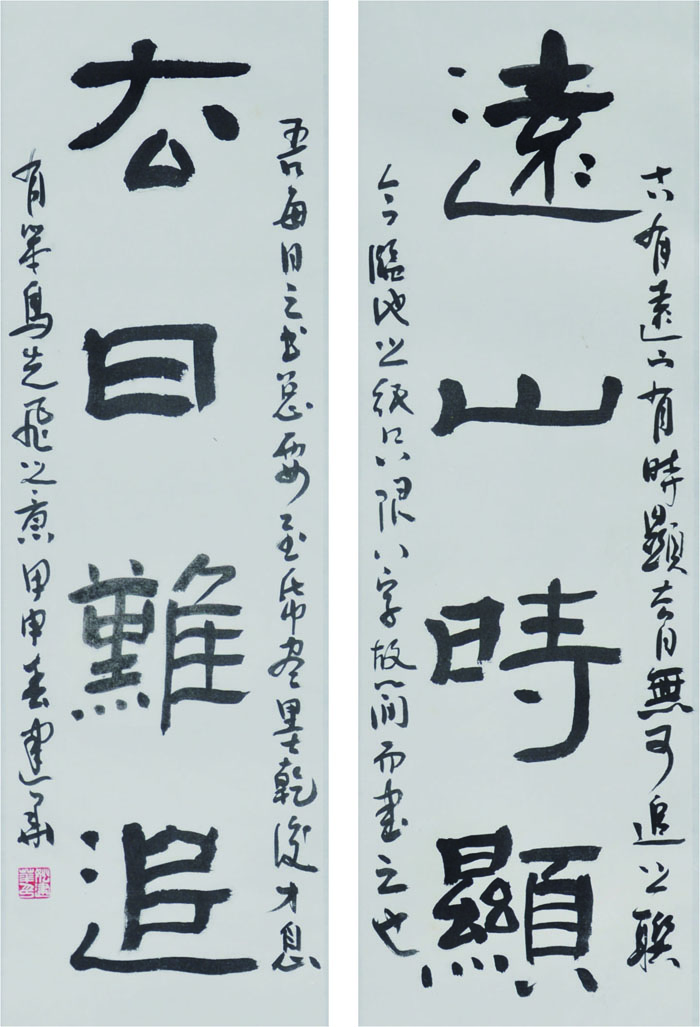 遠山時顯
古有遠山有時顯去日無可追之聯
今臨池之紙只限八字故簡而書之也
去日難追
吾每日之書總要至紙盡墨乾後才息
有笨鳥先飛之意甲申春建華